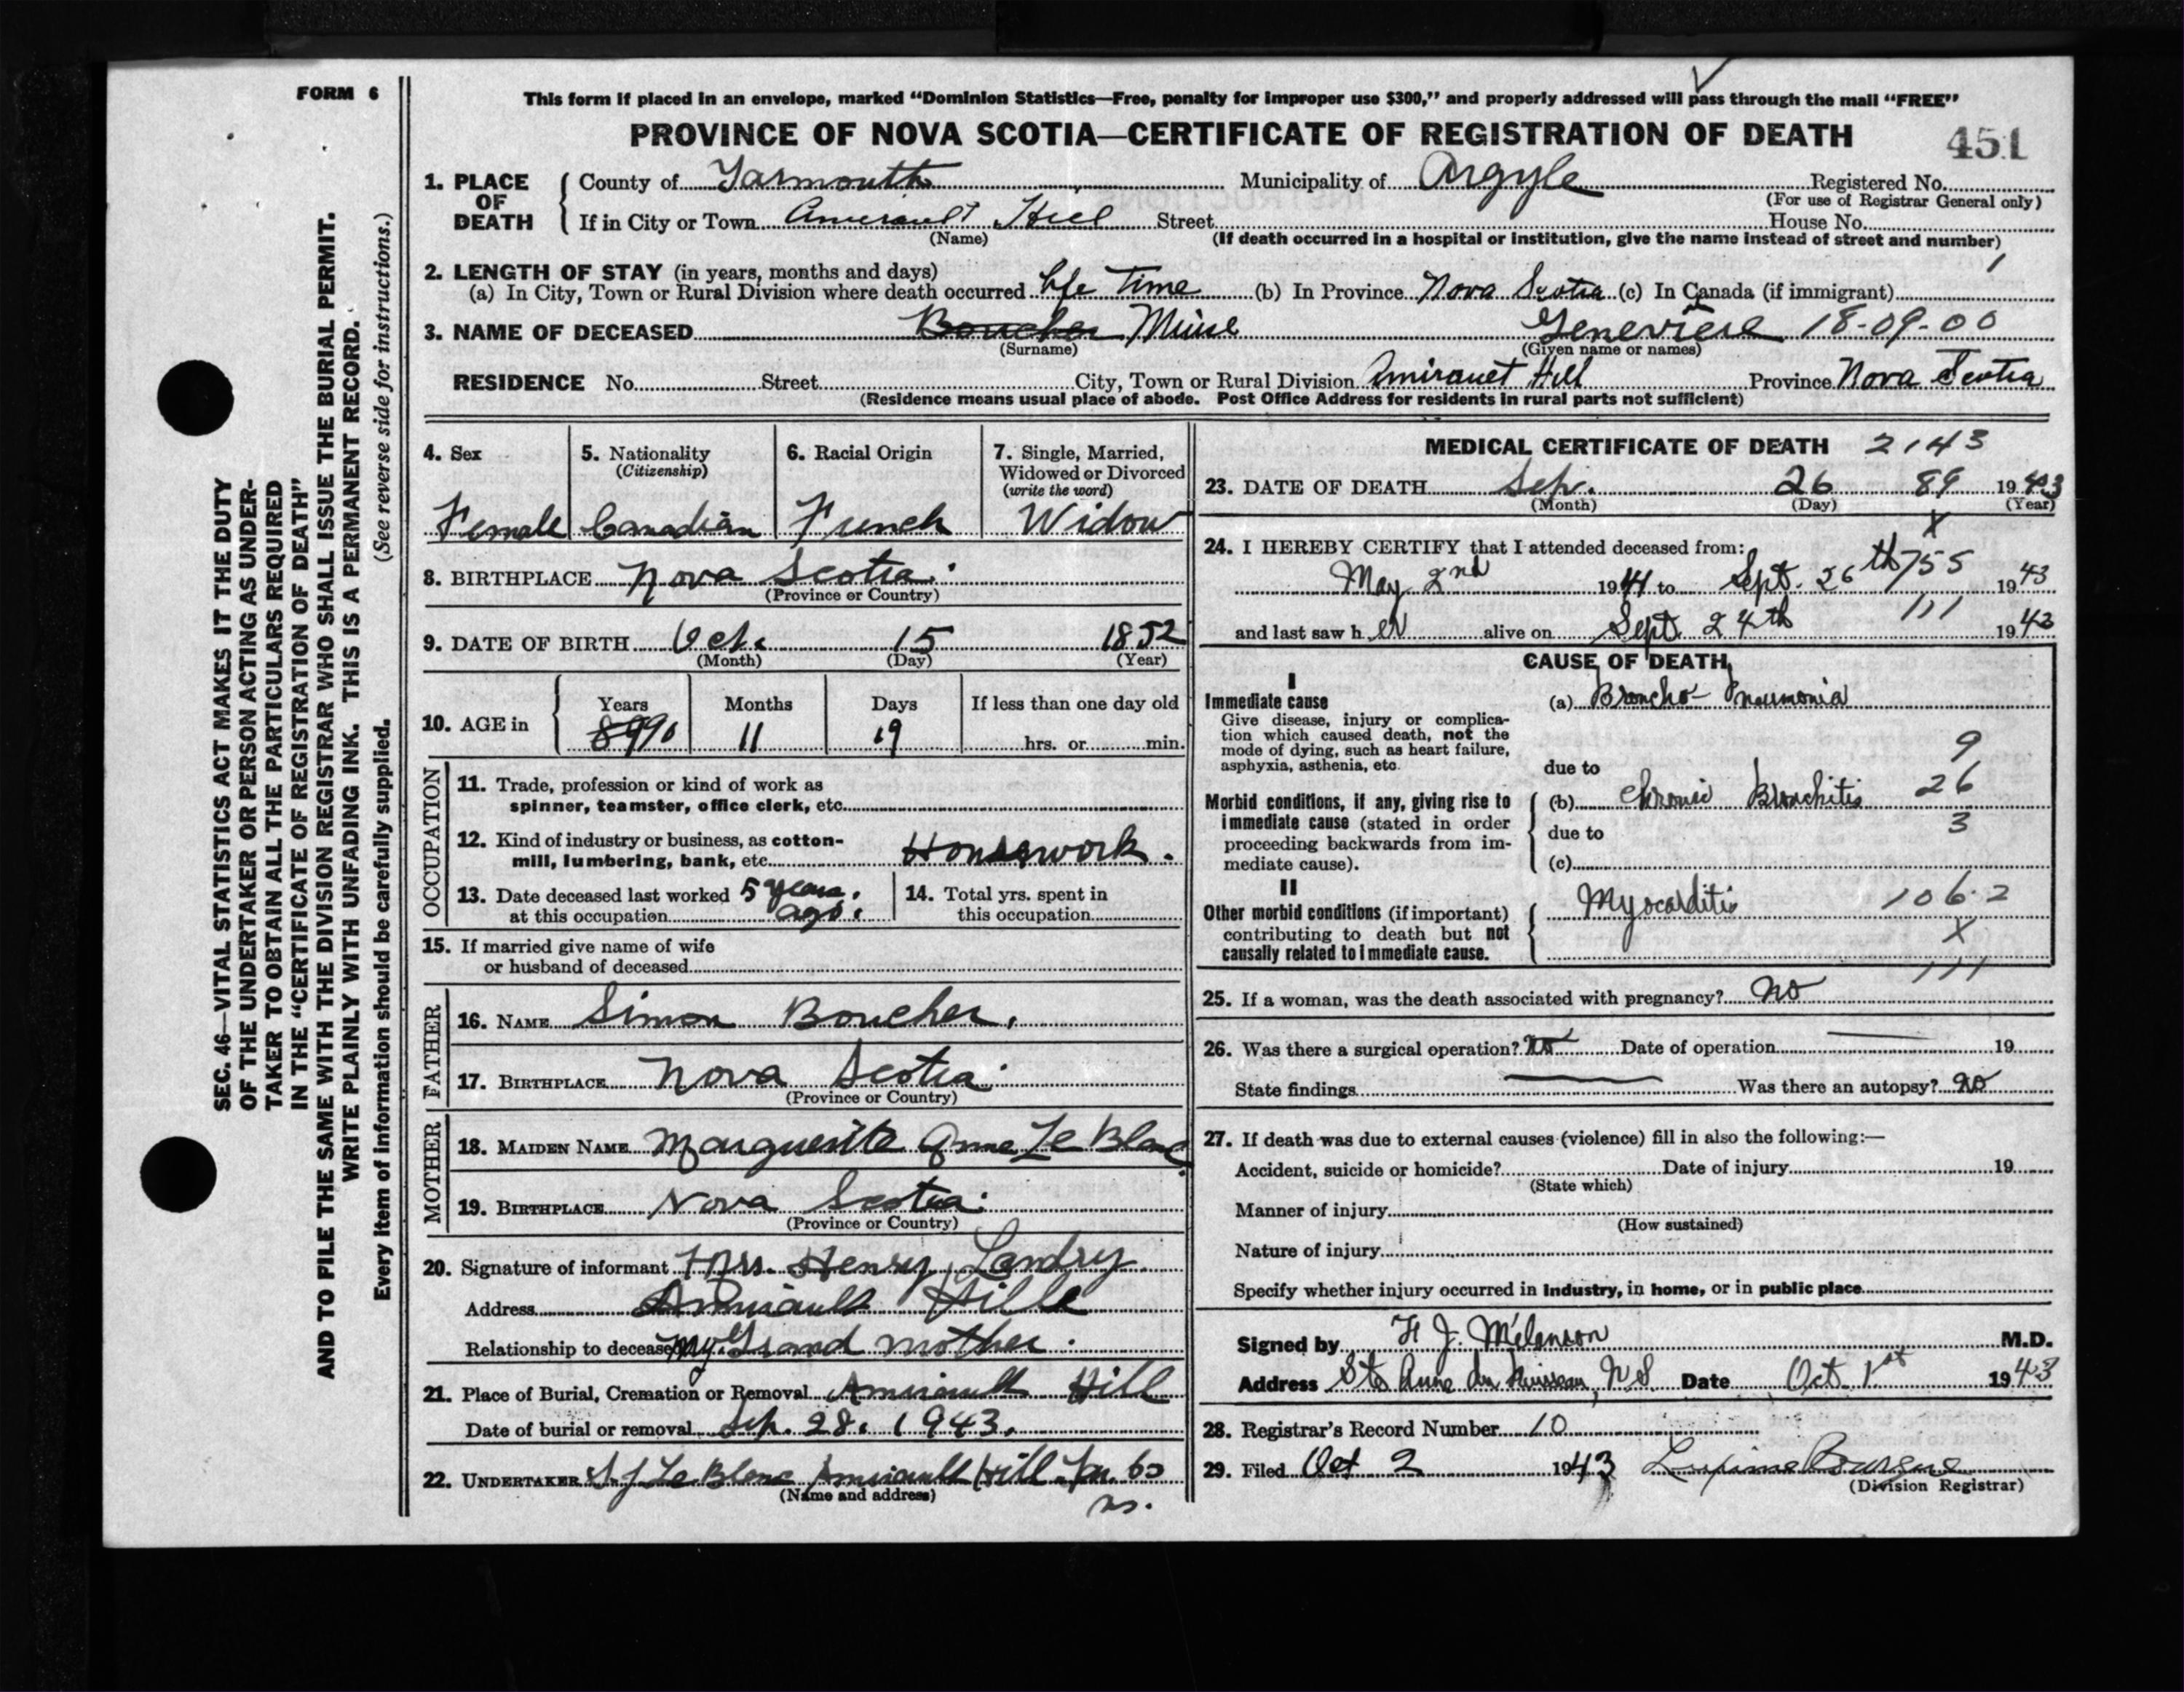 FORM 6
This form if placed in an envelope, marked “Dominion Statistics—Free, penalty for improper use $300,” and properly addressed will pass through the mail “FREE”
PROVINCE OF NOVA SCOTIA—CERTIFICATE OF REGISTRATION OF DEATH
451
1. PLACE OF DEATH
County of Yarmouth Municipality of Argyle Registered No.
(For use of Registrar General only)
If in City or Town Amirault Hill Street House No.
(Name) (If death occurred in a hospital or institution, give the name instead of street and number)
2. LENGTH OF STAY (in years, months and days) 1
(a) In City, Town or Rural Division where death occurred life Time (b) In Province Nova Scotia (c) In Canada (if immigrant)
3. NAME OF DECEASED Boucher Muise Genevieve 18-09-00
(Surname) (Given name or names)
RESIDENCE No. Street City, Town or Rural Division Hill Province Nova Scotia
(Residence means usual place of abode. Post Office Address for residents in rural parts not sufficient)
4. Sex
Female
5. Nationality
(Citizenship)
Canadian
6. Racial Origin
French
7. Single, Married,
Widowed or Divorced
(write the word)
Widow
8. BIRTHPLACE Nova Scotia.
(Province or Country)
9. DATE OF BIRTH Oct. 15 1852
(Month) (Day) (Year)
10. AGE in
Years Months Days If less than one day old
89 90 11 19 hrs. or min.
OCCUPATION
11. Trade, profession or kind of work as
spinner, teamster, office clerk, etc.
12. Kind of industry or business, as cotton-
mill, lumbering, bank, etc. Housework.
13. Date deceased last worked 5 years.
at this occupation ago.
14. Total yrs. spent in
this occupation
15. If married give name of wife
or husband of deceased
FATHER
16. NAME Simon Boucher.
17. BIRTHPLACE Nova Scotia.
(Province or Country)
MOTHER
18. MAIDEN NAME Marguerite Anne Le Blanc
19. BIRTHPLACE Nova Scotia.
(Province or Country)
20. Signature of informant Mrs. Henry Landry
Address Amirault Hill
Relationship to deceased My Grand mother.
21. Place of Burial, Cremation or Removal Amirault Hill
Date of burial or removal Sep. 28. 1943.
22. UNDERTAKER S J Le Blanc Amirault Hill Yar. Co
(Name and address) NS.
MEDICAL CERTIFICATE OF DEATH 2143
23. DATE OF DEATH Sep. 26 89 1943
(Month) (Day) (Year)
X
24. I HEREBY CERTIFY that I attended deceased from:
May 2nd 1941 to Sept. 26th 755 1943
and last saw h er alive on Sept 24th 111 1943
CAUSE OF DEATH
I
Immediate cause
Give disease, injury or complica-
tion which caused death, not the
mode of dying, such as heart failure,
asphyxia, asthenia, etc.
(a) Broncho-Pneumonia
9
due to
Morbid conditions, if any, giving rise to
immediate cause (stated in order
proceeding backwards from im-
mediate cause).
(b) Chronic Bronchitis 26
due to 3
(c)
II
Other morbid conditions (if important)
contributing to death but not
causally related to immediate cause.
Myocarditis 106.2
X
111
25. If a woman, was the death associated with pregnancy? No
26. Was there a surgical operation? no Date of operation 19
State findings Was there an autopsy? no
27. If death was due to external causes (violence) fill in also the following:—
Accident, suicide or homicide? Date of injury 19
(State which)
Manner of injury
(How sustained)
Nature of injury
Specify whether injury occurred in industry, in home, or in public place
Signed by H J. Melanson M.D.
Address Ste Anne du Ruisseau, N S Date Oct 1st 1943
28. Registrar's Record Number 10
29. Filed Oct 2 1943
(Division Registrar)
SEC. 46—VITAL STATISTICS ACT MAKES IT THE DUTY
OF THE UNDERTAKER OR PERSON ACTING AS UNDER-
TAKER TO OBTAIN ALL THE PARTICULARS REQUIRED
IN THE “CERTIFICATE OF REGISTRATION OF DEATH”
AND TO FILE THE SAME WITH THE DIVISION REGISTRAR WHO SHALL ISSUE THE BURIAL PERMIT.
WRITE PLAINLY WITH UNFADING INK. THIS IS A PERMANENT RECORD.
Every item of information should be carefully supplied. (See reverse side for instructions.)